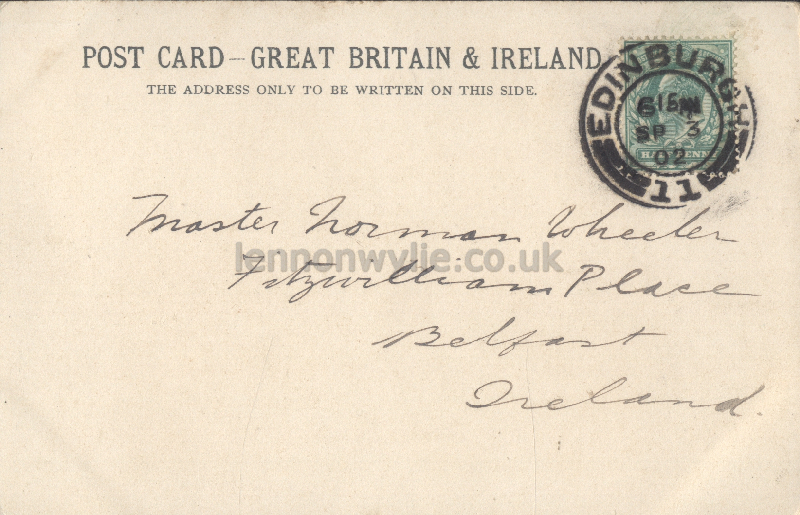 POST CARD—GREAT BRITAIN & IRELAND
THE ADDRESS ONLY TO BE WRITTEN ON THIS SIDE.
EDINBURGH
6 15 PM
SP 3
02
11
HALFPENNY
Master Norman Wheeler
lennonwylie.co.uk
Fitzwilliam Place
Belfast
Ireland.